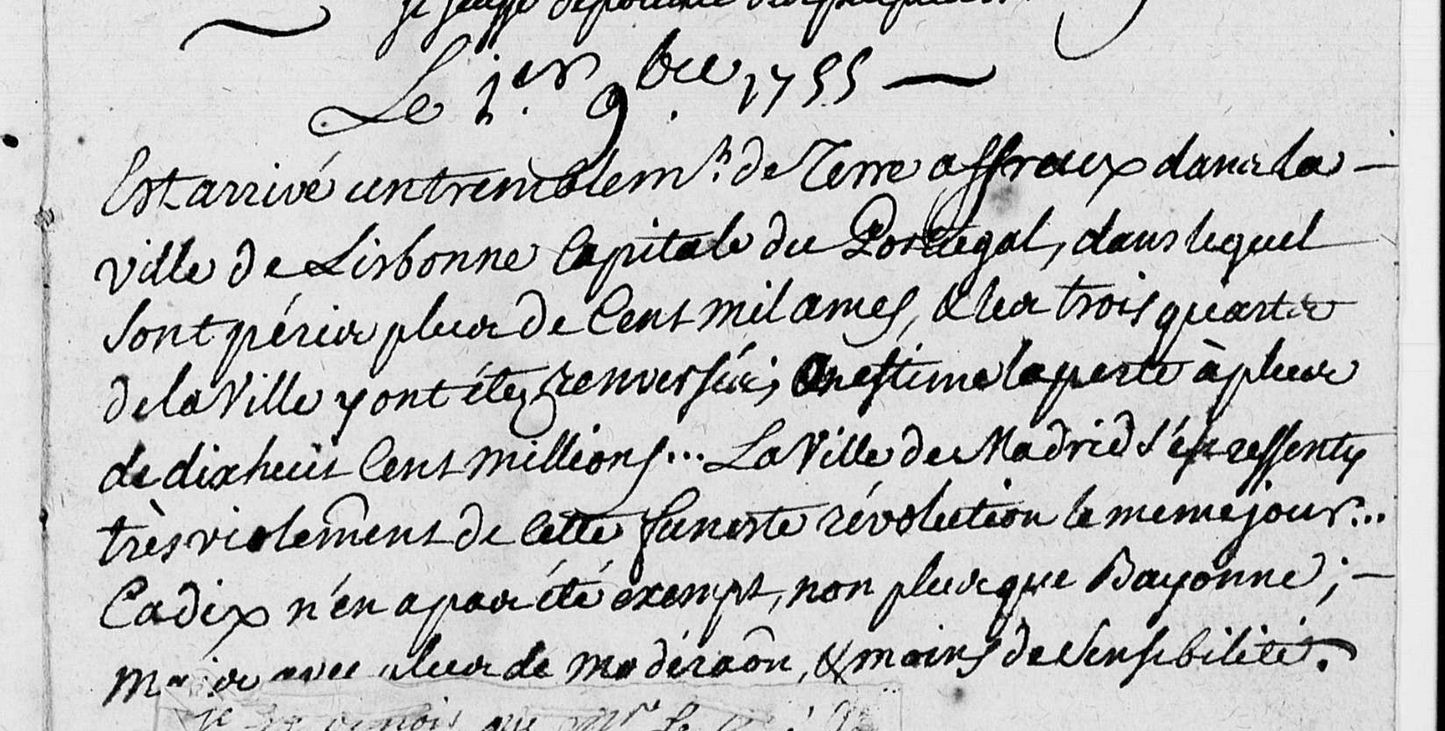 Le 1er. 9.bre 1755
Est arrivé un tremblemt. de Terre affreux dans la
ville de Lisbonne Capitale du Portugal, dans lequel
sont péris plus de Cent mil ames, & les trois quarts
de la Ville y ont étez renversés; On estime la perte à plus
de dixhuit Cent millions... La Ville de Madrid s'est ressenty
très violemment de Cette funeste révolution le meme jour...
Cadix n'en a pas été exempt, non plus que Bayonne;
Mais avec plus de modéraôn, & moins de sensibilité.